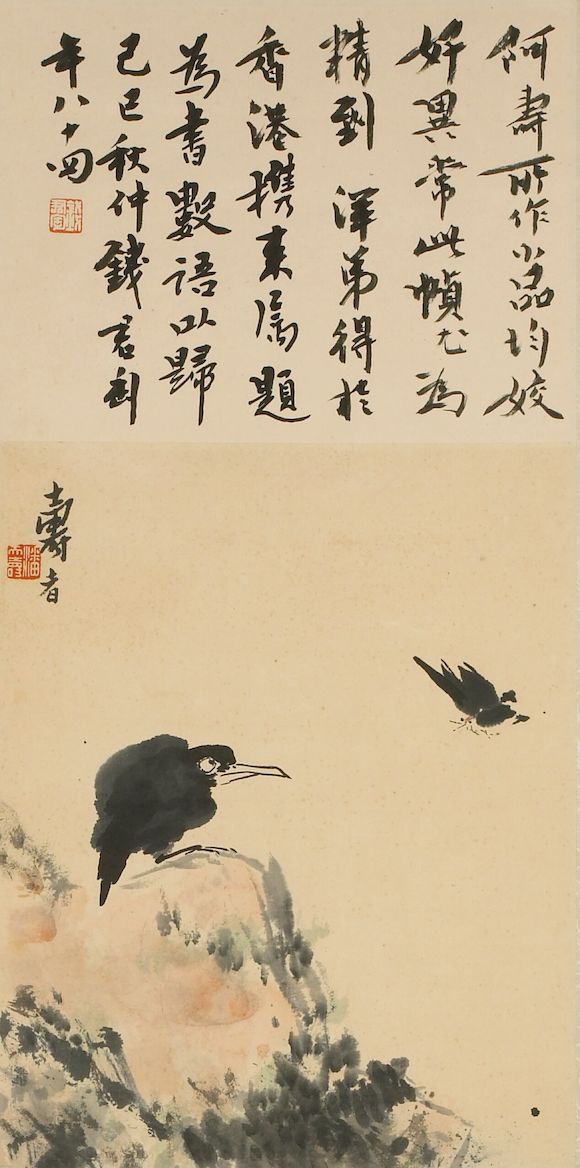 阿壽所作小品均姣
好異常此幀尤為
精到 渾弟得於
香港攜來屬題
為書數語以歸
己巳秋仲錢君匋
年八十四
壽者
潘天壽